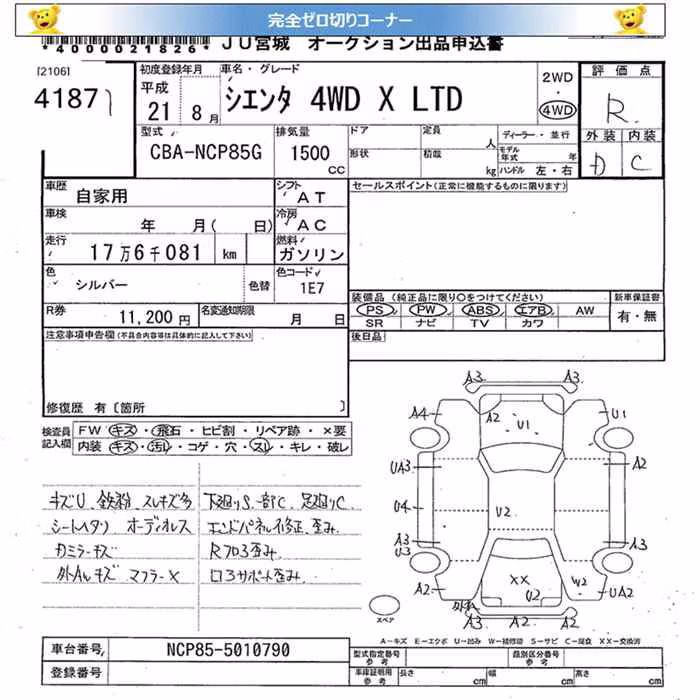 完全ゼロ切りコーナー
*4000021826* JU宮城 オークション出品申込書
[2106]
4187
初度登録年月
平成
21 8月
車名・グレード
シエンタ 4WD X LTD
2WD
4WD
評価点
R
外装 内装
D C
型式
CBA-NCP85G
排気量
1500
CC
ドア
形状
定員
人
積載
kg
ディーラー・並行
モデル年式 年
ハンドル 左・右
車歴
自家用
シフト
AT
車検
年 月( 日)
冷房
AC
走行
17万6千081 km
燃料
ガソリン
色
シルバー
色替
色コード
1E7
R券
11,200円
名変通知期限
月 日
セールスポイント(正常に機能するものに限ります)
装備品(純正品に限り○をつけてください)
PS PW ABS エアB AW
SR ナビ TV カワ
新車保証書
有・無
後日品
注意事項申告欄(不具合内容等は具体的に記入して下さい)
修復歴 有〔箇所 〕
検査員記入欄
FW キズ・飛石・ヒビ割・リペア跡・×要
内装 キズ・汚レ・コゲ・穴・スレ・キレ・破レ
キズU、鉄粉、スレキズ多
シートヘタリ オーディオレス
カミラーキズ
外Aルキズ マフラーX
下廻りS、一部C、足廻りC、
エンドパネル修正、歪み、
Rフロア歪み、
ロアサポート歪み、
A3 A3
A4 A2 U1 U1
UA3 A2
U4 U2
A3 A3
U3
A2 XX U2 W2 UA2
A3 A2 A2
スペア
A-キズ E-エクボ U-凹み W-補修跡 S-サビ C-腐食 XX-交換済
車台番号
NCP85-5010790
登録番号
型式指定番号
参考
類別区分番号
参考
車庫証明用
参考
長さ cm
幅 cm
高さ cm